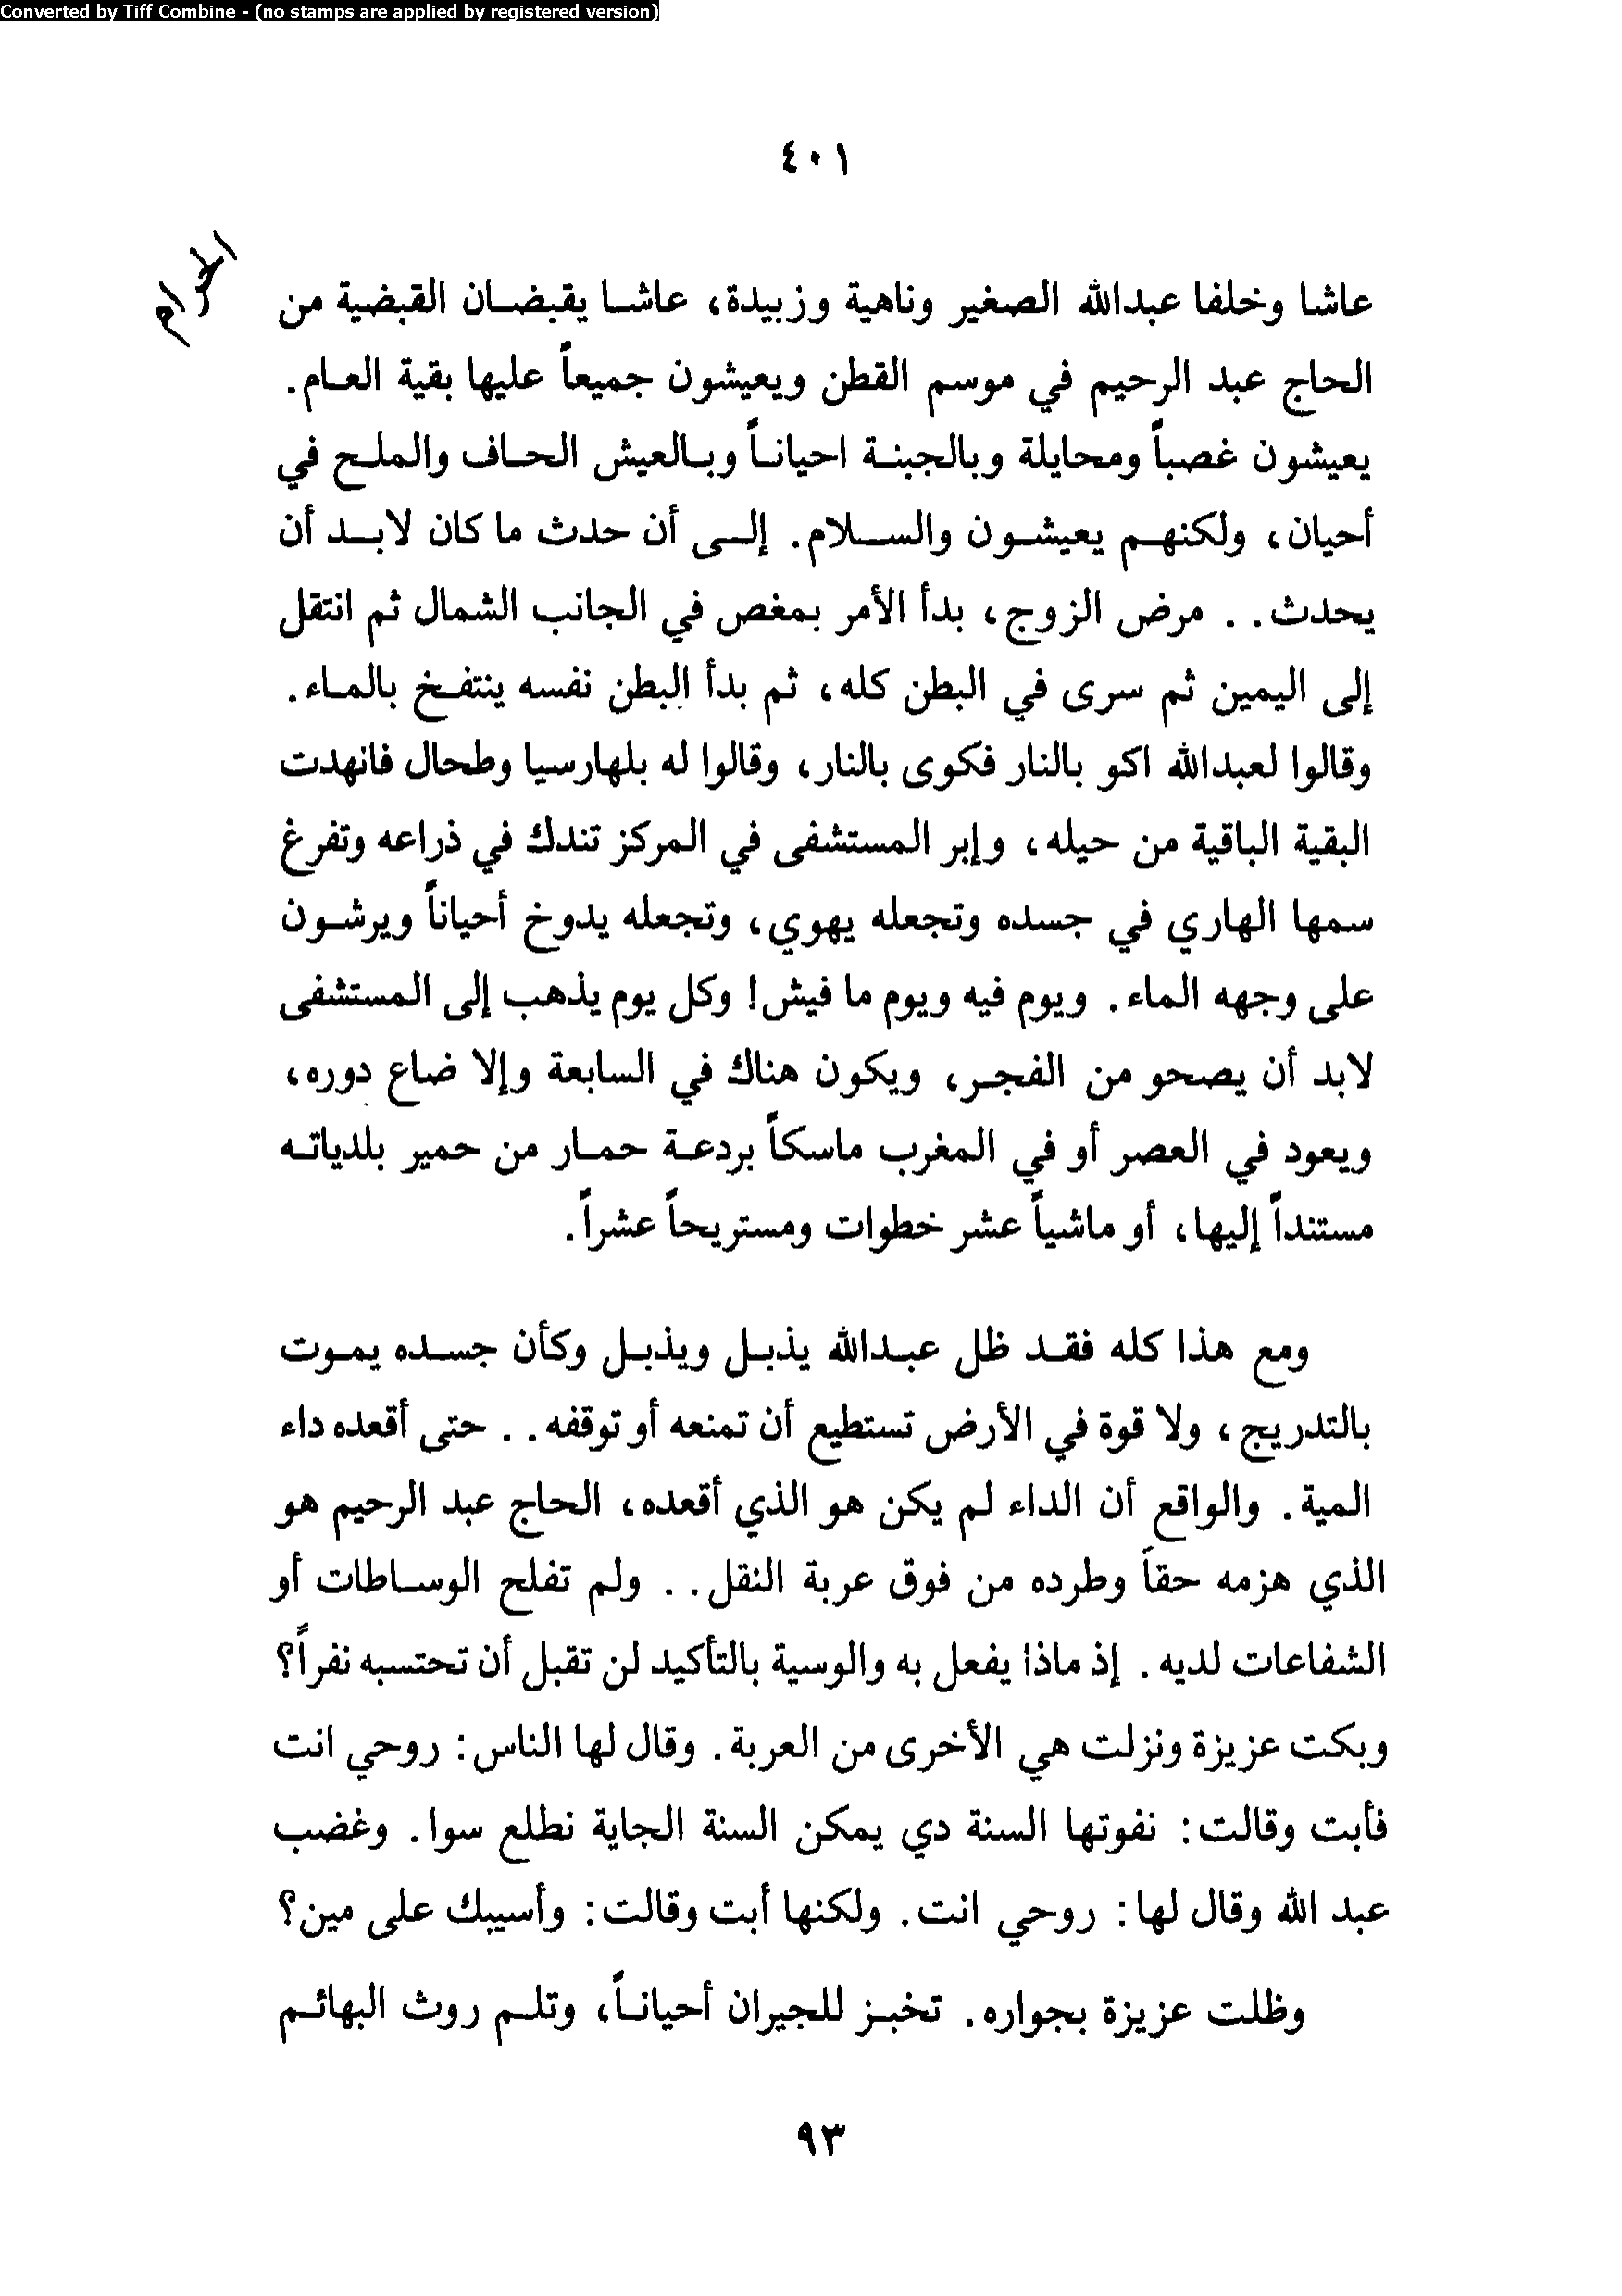 Converted by Tiff Combine - (no stamps are applied by registered version)
٤٠١
الحرام
عاشا وخلفا عبدالله الصغير وناهية وزبيدة، عاشا يقبضان القبضية من
الحاج عبد الرحيم في موسم القطن ويعيشون جميعاً عليها بقية العام.
يعيشون غصباً ومحايلة وبالجبنة احياناً وبالعيش الحاف والملح في
أحيان، ولكنهم يعيشون والسلام. إلى أن حدث ما كان لابد أن
يحدث.. مرض الزوج، بدأ الأمر بمغص في الجانب الشمال ثم انتقل
إلى اليمين ثم سرى في البطن كله، ثم بدأ البطن نفسه ينتفخ بالماء.
وقالوا لعبدالله اكو بالنار فكوى بالنار، وقالوا له بلهارسيا وطحال فانهدت
البقية الباقية من حيله، وإبر المستشفى في المركز تندك في ذراعه وتفرغ
سمها الهاري في جسده وتجعله يهوي، وتجعله يدوخ أحياناً ويرشون
على وجهه الماء. ويوم فيه ويوم ما فيش! وكل يوم يذهب إلى المستشفى
لابد أن يصحو من الفجر، ويكون هناك في السابعة وإلا ضاع دوره،
ويعود في العصر أو في المغرب ماسكاً بردعة حمار من حمير بلدياته
مستنداً إليها، أو ماشياً عشر خطوات ومستريحاً عشراً.
ومع هذا كله فقد ظل عبدالله يذبل ويذبل وكأن جسده يموت
بالتدريج، ولا قوة في الأرض تستطيع أن تمنعه أو توقفه.. حتى أقعده داء
المية. والواقع أن الداء لم يكن هو الذي أقعده، الحاج عبد الرحيم هو
الذي هزمه حقاً وطرده من فوق عربة النقل.. ولم تفلح الوساطات أو
الشفاعات لديه. إذ ماذا يفعل به والوسية بالتأكيد لن تقبل أن تحتسبه نفراً؟
وبكت عزيزة ونزلت هي الأخرى من العربة. وقال لها الناس: روحي انت
فأبت وقالت: نفوتها السنة دي يمكن السنة الجاية نطلع سوا. وغضب
عبد الله وقال لها: روحي انت. ولكنها أبت وقالت: وأسيبك على مين؟
وظلت عزيزة بجواره. تخبز للجيران أحياناً، وتلم روث البهائم
٩٣